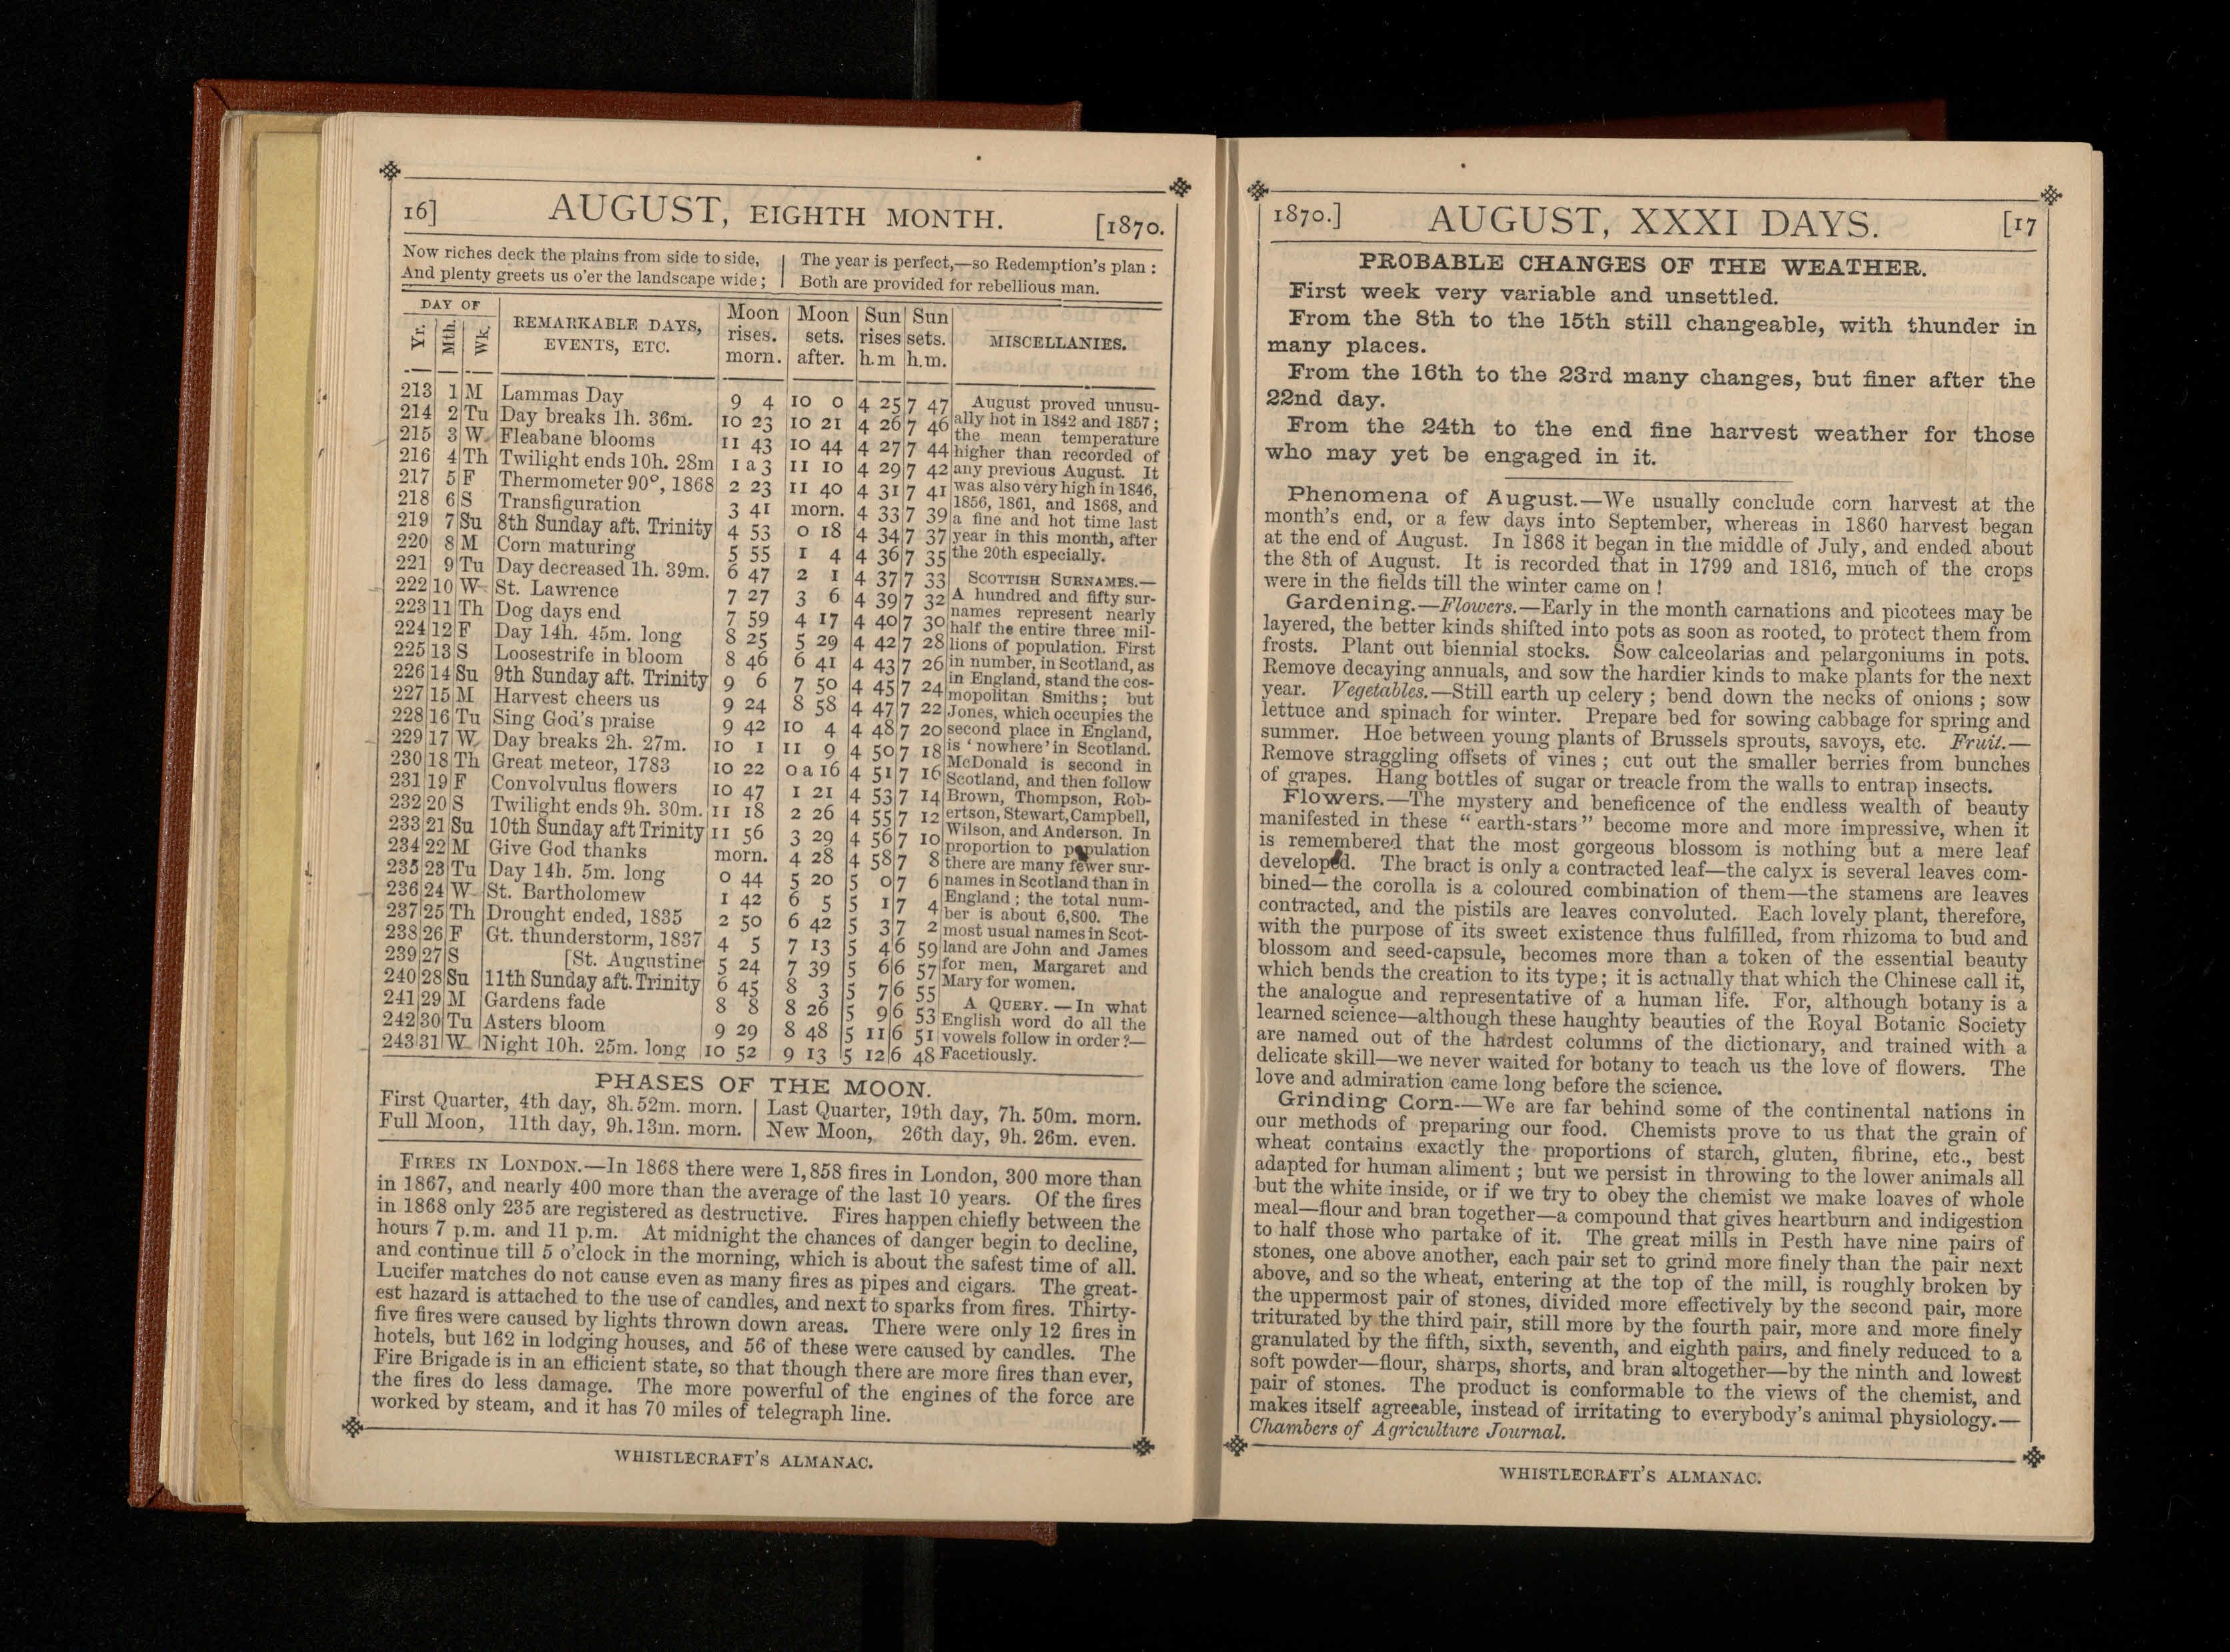 16] AUGUST, EIGHTH MONTH. [1870.
Now riches deck the plains from side to side,
And plenty greets us o'er the landscape wide;
The year is perfect,—so Redemption's plan:
Both are provided for rebellious man.
DAY OF
Yr. Mth. Wk.
REMARKABLE DAYS, EVENTS, ETC.
Moon rises. morn.
Moon sets. after.
Sun rises h.m
Sun sets. h.m.
MISCELLANIES.
213 1 M Lammas Day 9 4 10 0 4 25 7 47
214 2 Tu Day breaks 1h. 36m. 10 23 10 21 4 26 7 46
215 3 W Fleabane blooms 11 43 10 44 4 27 7 44
216 4 Th Twilight ends 10h. 28m 1 a 3 11 10 4 29 7 42
217 5 F Thermometer 90°, 1868 2 23 11 40 4 31 7 41
218 6 S Transfiguration 3 41 morn. 4 33 7 39
219 7 Su 8th Sunday aft. Trinity 4 53 0 18 4 34 7 37
220 8 M Corn maturing 5 55 1 4 4 36 7 35
221 9 Tu Day decreased 1h. 39m. 6 47 2 1 4 37 7 33
222 10 W St. Lawrence 7 27 3 6 4 39 7 32
223 11 Th Dog days end 7 59 4 17 4 40 7 30
224 12 F Day 14h. 45m. long 8 25 5 29 4 42 7 28
225 13 S Loosestrife in bloom 8 46 6 41 4 43 7 26
226 14 Su 9th Sunday aft. Trinity 9 6 7 50 4 45 7 24
227 15 M Harvest cheers us 9 24 8 58 4 47 7 22
228 16 Tu Sing God's praise 9 42 10 4 4 48 7 20
229 17 W Day breaks 2h. 27m. 10 1 11 9 4 50 7 18
230 18 Th Great meteor, 1783 10 22 0 a 16 4 51 7 16
231 19 F Convolvulus flowers 10 47 1 21 4 53 7 14
232 20 S Twilight ends 9h. 30m. 11 18 2 26 4 55 7 12
233 21 Su 10th Sunday aft Trinity 11 56 3 29 4 56 7 10
234 22 M Give God thanks morn. 4 28 4 58 7 8
235 23 Tu Day 14h. 5m. long 0 44 5 20 5 0 7 6
236 24 W St. Bartholomew 1 42 6 5 5 1 7 4
237 25 Th Drought ended, 1835 2 50 6 42 5 3 7 2
238 26 F Gt. thunderstorm, 1837 4 5 7 13 5 4 6 59
239 27 S [St. Augustine 5 24 7 39 5 6 6 57
240 28 Su 11th Sunday aft. Trinity 6 45 8 3 5 7 6 55
241 29 M Gardens fade 8 8 8 26 5 9 6 53
242 30 Tu Asters bloom 9 29 8 48 5 11 6 51
243 31 W Night 10h. 25m. long 10 52 9 13 5 12 6 48
August proved unusu-
ally hot in 1842 and 1857;
the mean temperature
higher than recorded of
any previous August. It
was also very high in 1846,
1856, 1861, and 1868, and
a fine and hot time last
year in this month, after
the 20th especially.
SCOTTISH SURNAMES.—
A hundred and fifty sur-
names represent nearly
half the entire three mil-
lions of population. First
in number, in Scotland, as
in England, stand the cos-
mopolitan Smiths; but
Jones, which occupies the
second place in England,
is 'nowhere' in Scotland.
McDonald is second in
Scotland, and then follow
Brown, Thompson, Rob-
ertson, Stewart, Campbell,
Wilson, and Anderson. In
proportion to population
there are many fewer sur-
names in Scotland than in
England; the total num-
ber is about 6,800. The
most usual names in Scot-
land are John and James
for men, Margaret and
Mary for women.
A QUERY.—In what
English word do all the
vowels follow in order?—
Facetiously.
PHASES OF THE MOON.
First Quarter, 4th day, 8h. 52m. morn.
Full Moon, 11th day, 9h. 13m. morn.
Last Quarter, 19th day, 7h. 50m. morn.
New Moon, 26th day, 9h. 26m. even.
FIRES IN LONDON.—In 1868 there were 1,858 fires in London, 300 more than
in 1867, and nearly 400 more than the average of the last 10 years. Of the fires
in 1868 only 235 are registered as destructive. Fires happen chiefly between the
hours 7 p.m. and 11 p.m. At midnight the chances of danger begin to decline,
and continue till 5 o'clock in the morning, which is about the safest time of all.
Lucifer matches do not cause even as many fires as pipes and cigars. The great-
est hazard is attached to the use of candles, and next to sparks from fires. Thirty-
five fires were caused by lights thrown down areas. There were only 12 fires in
hotels, but 162 in lodging houses, and 56 of these were caused by candles. The
Fire Brigade is in an efficient state, so that though there are more fires than ever,
the fires do less damage. The more powerful of the engines of the force are
worked by steam, and it has 70 miles of telegraph line.
WHISTLECRAFT'S ALMANAC.
1870.] AUGUST, XXXI DAYS. [17
PROBABLE CHANGES OF THE WEATHER.
First week very variable and unsettled.
From the 8th to the 15th still changeable, with thunder in
many places.
From the 16th to the 23rd many changes, but finer after the
22nd day.
From the 24th to the end fine harvest weather for those
who may yet be engaged in it.
Phenomena of August.—We usually conclude corn harvest at the
month's end, or a few days into September, whereas in 1860 harvest began
at the end of August. In 1868 it began in the middle of July, and ended about
the 8th of August. It is recorded that in 1799 and 1816, much of the crops
were in the fields till the winter came on!
Gardening.—Flowers.—Early in the month carnations and picotees may be
layered, the better kinds shifted into pots as soon as rooted, to protect them from
frosts. Plant out biennial stocks. Sow calceolarias and pelargoniums in pots.
Remove decaying annuals, and sow the hardier kinds to make plants for the next
year. Vegetables.—Still earth up celery; bend down the necks of onions; sow
lettuce and spinach for winter. Prepare bed for sowing cabbage for spring and
summer. Hoe between young plants of Brussels sprouts, savoys, etc. Fruit.—
Remove straggling offsets of vines; cut out the smaller berries from bunches
of grapes. Hang bottles of sugar or treacle from the walls to entrap insects.
Flowers.—The mystery and beneficence of the endless wealth of beauty
manifested in these "earth-stars" become more and more impressive, when it
is remembered that the most gorgeous blossom is nothing but a mere leaf
developed. The bract is only a contracted leaf—the calyx is several leaves com-
bined—the corolla is a coloured combination of them—the stamens are leaves
contracted, and the pistils are leaves convoluted. Each lovely plant, therefore,
with the purpose of its sweet existence thus fulfilled, from rhizoma to bud and
blossom and seed-capsule, becomes more than a token of the essential beauty
which bends the creation to its type; it is actually that which the Chinese call it,
the analogue and representative of a human life. For, although botany is a
learned science—although these haughty beauties of the Royal Botanic Society
are named out of the hardest columns of the dictionary, and trained with a
delicate skill—we never waited for botany to teach us the love of flowers. The
love and admiration came long before the science.
Grinding Corn.—We are far behind some of the continental nations in
our methods of preparing our food. Chemists prove to us that the grain of
wheat contains exactly the proportions of starch, gluten, fibrine, etc., best
adapted for human aliment; but we persist in throwing to the lower animals all
but the white inside, or if we try to obey the chemist we make loaves of whole
meal—flour and bran together—a compound that gives heartburn and indigestion
to half those who partake of it. The great mills in Pesth have nine pairs of
stones, one above another, each pair set to grind more finely than the pair next
above, and so the wheat, entering at the top of the mill, is roughly broken by
the uppermost pair of stones, divided more effectively by the second pair, more
triturated by the third pair, still more by the fourth pair, more and more finely
granulated by the fifth, sixth, seventh, and eighth pairs, and finely reduced to a
soft powder—flour, sharps, shorts, and bran altogether—by the ninth and lowest
pair of stones. The product is conformable to the views of the chemist, and
makes itself agreeable, instead of irritating to everybody's animal physiology.—
Chambers of Agriculture Journal.
WHISTLECRAFT'S ALMANAC.